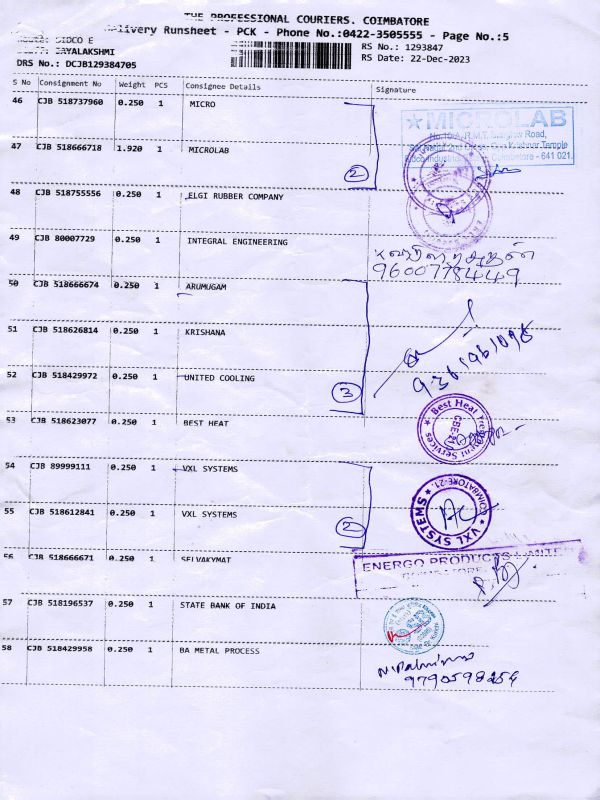 THE PROFESSIONAL COURIERS. COIMBATORE
Delivery Runsheet - PCK - Phone No.:0422-3505555 - Page No.:5
SIDCO E
JAYALAKSHMI
RS No.: 1293847
DRS No.: DCJB129384705
RS Date: 22-Dec-2023
S No Consignment No Weight PCS Consignee Details Signature
46 CJB 518737960 0.250 1 MICRO
★MICROLAB
Coimbatore - 641 021.
47 CJB 518666718 1.920 1 MICROLAB
2
48 CJB 518755556 0.250 1 ELGI RUBBER COMPANY
49 CJB 80007729 0.250 1 INTEGRAL ENGINEERING
9600778449
50 CJB 518666674 0.250 1 ARUMUGAM
51 CJB 518626814 0.250 1 KRISHANA
52 CJB 518429972 0.250 1 UNITED COOLING
3
53 CJB 518623077 0.250 1 BEST HEAT
★ Best Heat Treatment Services ★
CBE-21
54 CJB 89999111 0.250 1 VXL SYSTEMS
COIMBATORE-21.
★ VXL SYSTEMS ★
55 CJB 518612841 0.250 1 VXL SYSTEMS
2
56 CJB 518666671 0.250 1 SELVAKYMAT
ENERGO PRODUCTS LIMITED
57 CJB 518196537 0.250 1 STATE BANK OF INDIA
58 CJB 518429958 0.250 1 BA METAL PROCESS
9790598256